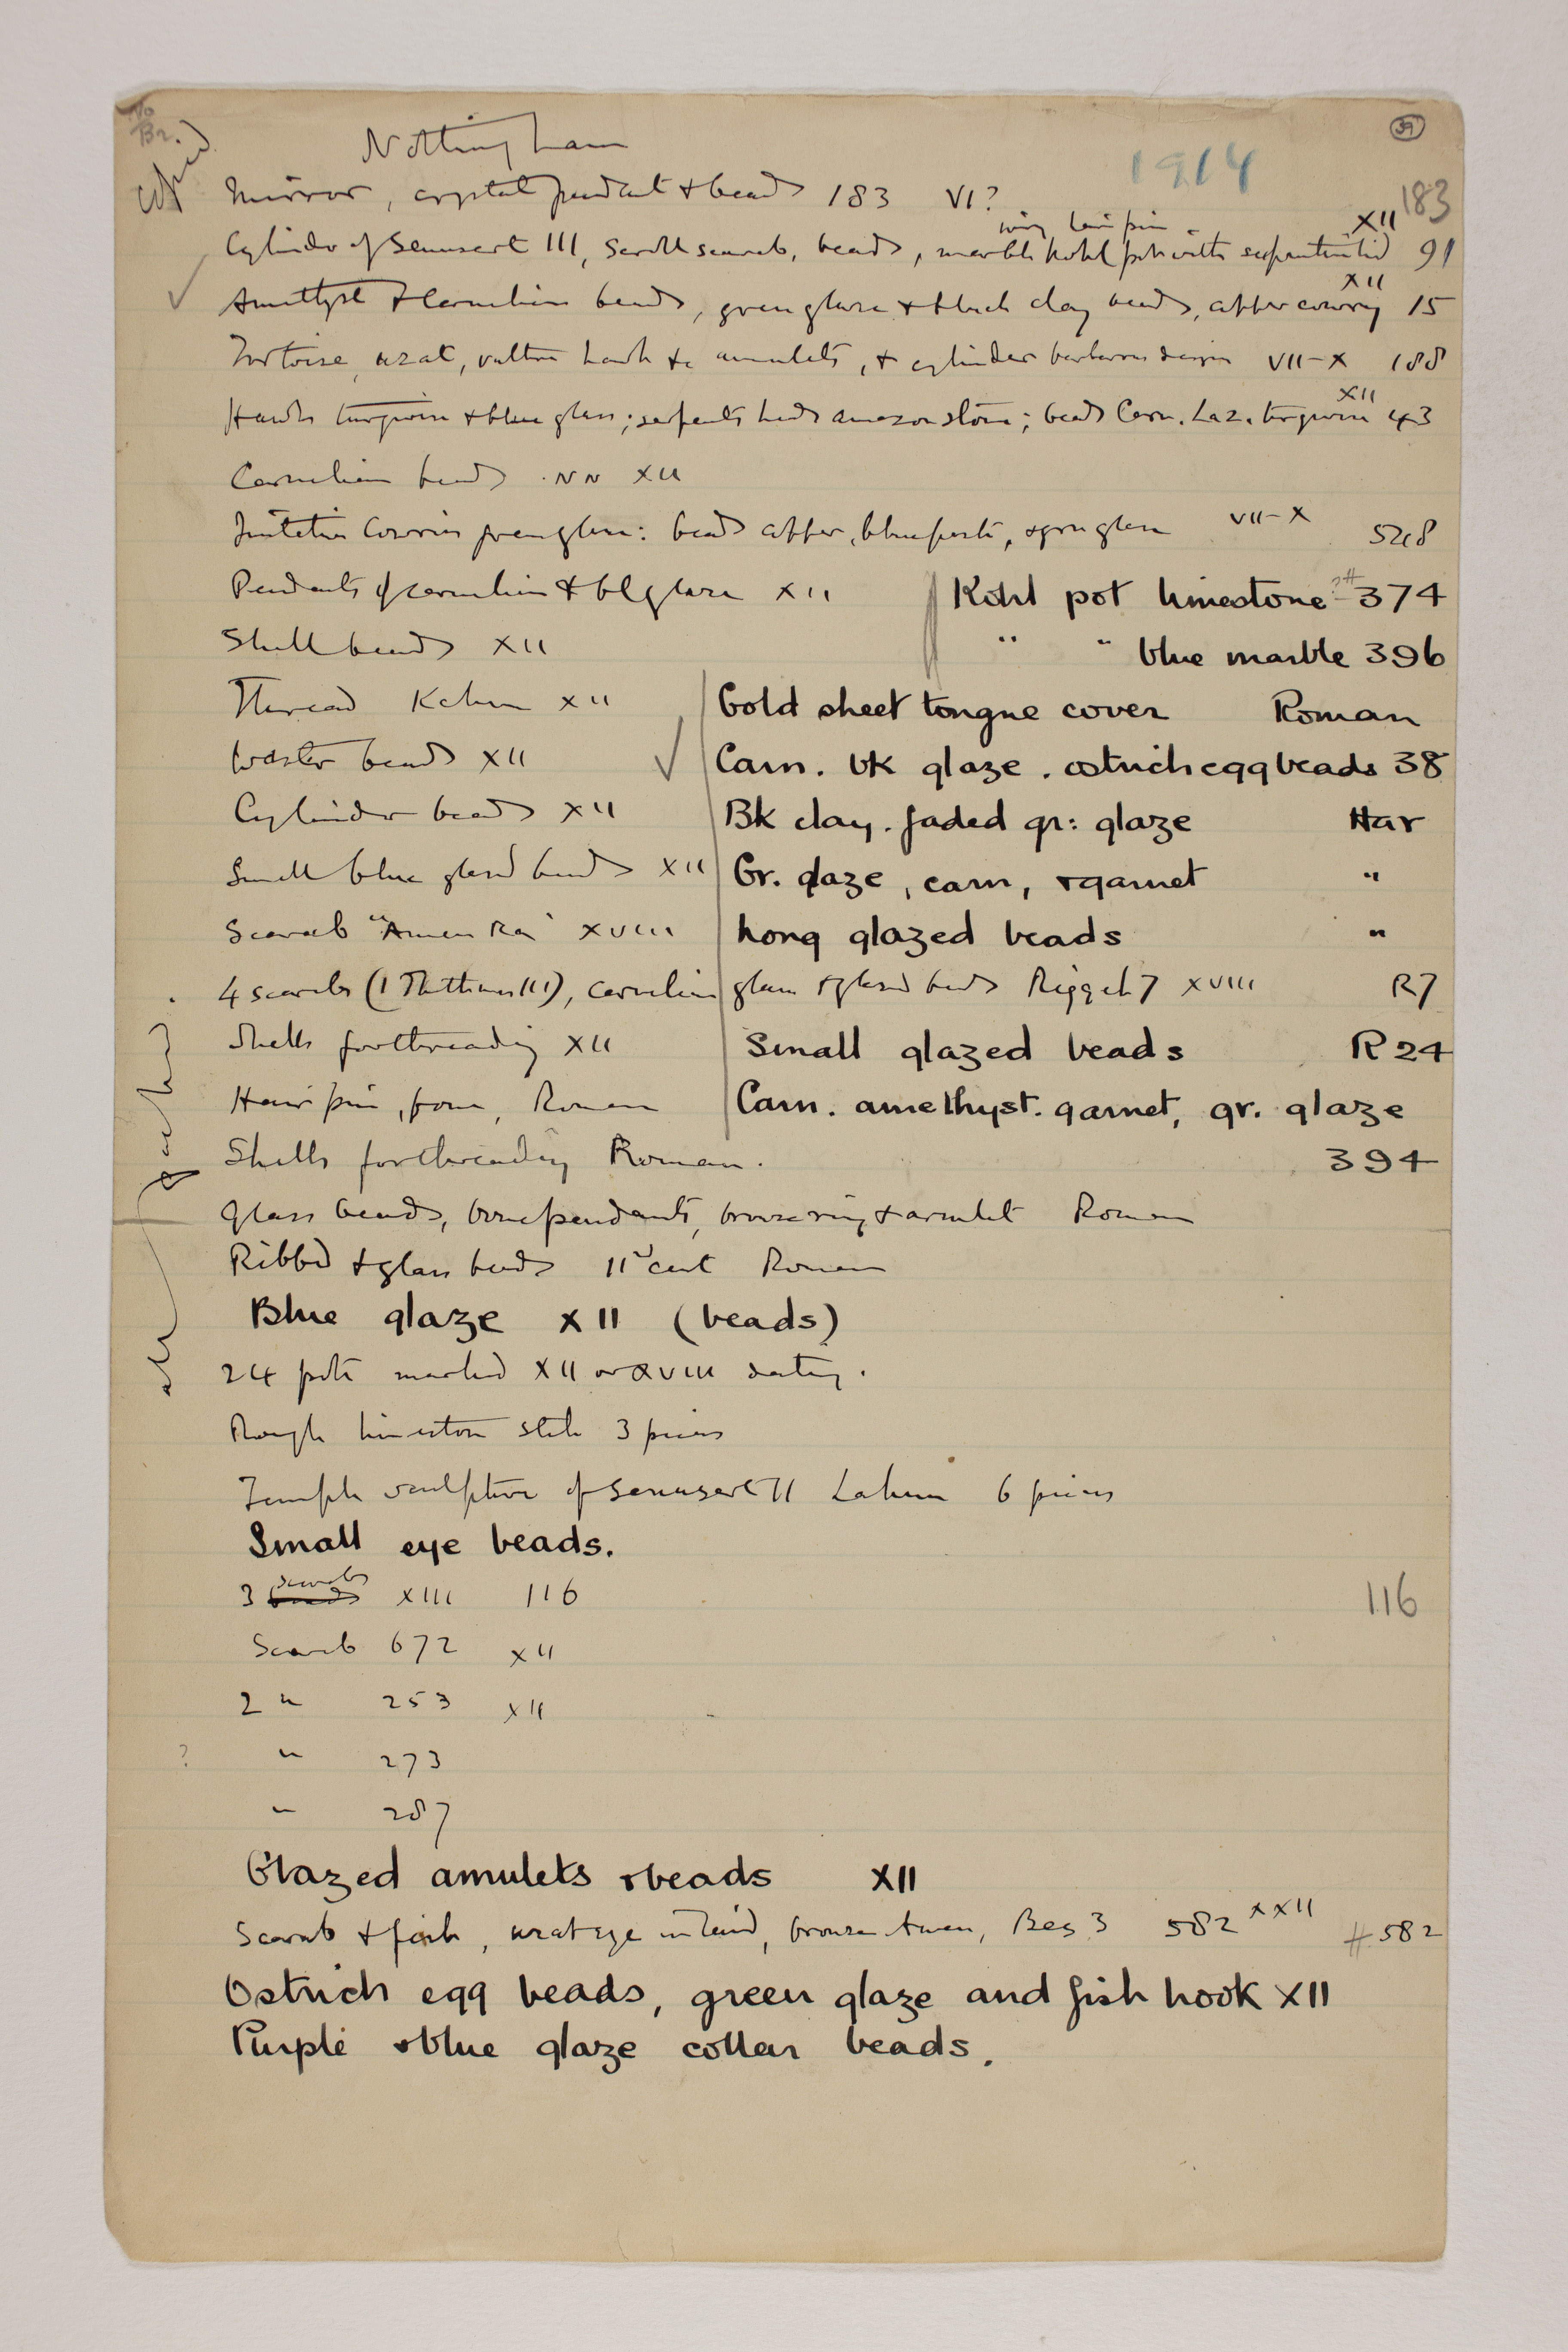 No
Br.
39
Nottingham
1914
copied
Mirror, crystal pendant & beads 183 VI?
183
ivory hair pin XII
Cylinder of Senusert III, scroll scarab, beads, marble kohl pot with serpentine lid 91
XII
Amethyst & Carnelian beads, green glaze & black clay beads, copper cowry 15
Tortoise, uzat, vulture hawk &c amulets, & cylinder barbarous design VII-X 188
XII
Hawks turquoise & blue glass; serpents heads amazon stone; beads Carn. Laz. turquoise 43
Carnelian beads NN XII
Imitation Cowries green glaze: beads copper, blue paste, & green glaze VII-X 528
Pendants of carnelian & bl glaze XII
Kohl pot limestone 374
Shell beads XII
" " blue marble 396
Thread Kahun XII
Gold sheet tongue cover Roman
Waster beads XII
Carn. bk glaze. ostrich egg beads 38
Cylinder beads XII
Bk clay. faded gr: glaze Har
Small blue glazed beads XII
Gr. glaze, carn, & garnet "
Scarab "Amen Ra" XVIII
Long glazed beads "
4 scarabs (1 Thothmes III), carnelian glass & glazed beads Riqqeh 7 XVIII R7
Shells for threading XII
Small glazed beads R 24
Hair pin, bone, Roman
Carn. amethyst. garnet, gr. glaze
394
Shells for threading Roman.
Glass beads, bone pendants, bronze ring & armlet Roman
Ribbed & glass beads II cent Roman
Blue glaze XII (beads)
24 pots marked XII or XVIII dating.
Rough limestone stele 3 pieces
Temple sculpture of Senusert II Lahun 6 pieces
Small eye beads.
3 scarabs XIII 116
116
Scarab 672 XII
2 " 253 XII
? " 273
" 287
Glazed amulets & beads XII
Scarab & fish, uzat eye inlaid, bronze Amen, Bes 3 582 XXII # 582
Ostrich egg beads, green glaze and fish hook XII
Purple & blue glaze collar beads.